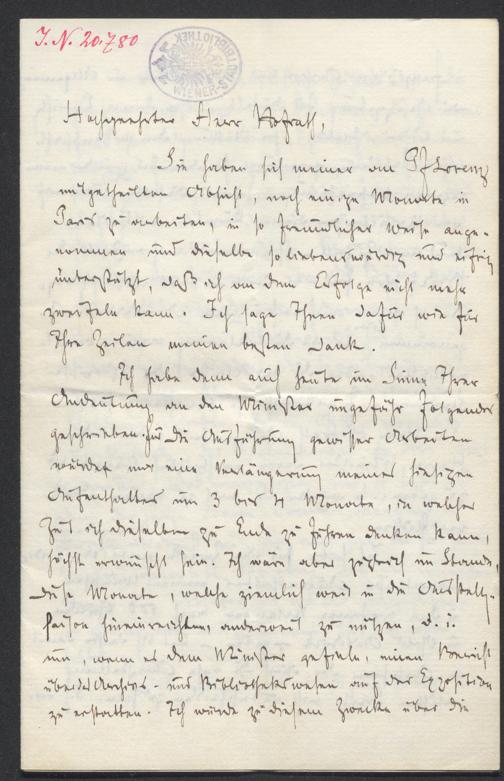 J. N. 20.780
WIENER STADTBIBLIOTHEK
Hochgeehrter Herr Hofrath,
Sie haben sich meiner an Lorenz
mitgetheilten Absicht, noch einige Monate in
Paris zu arbeiten, in so freundlicher Weise ange-
nommen und dieselbe so liebenswürdig und eifrig
unterstützt, daß ich an dem Erfolge nicht mehr
zweifeln kann. Ich sage Ihnen dafür wie für
Ihre Zeilen meinen besten Dank.
Ich habe denn auch heute im Sinne Ihrer
Andeutung an den Minister ungefähr Folgendes
geschrieben. Für die Ausführung gewisser Arbeiten
würde mir eine Verlängerung meines hiesigen
Aufenthaltes um 3 bis 4 Monate, in welcher
Zeit ich dieselben zu Ende zu führen denken kann,
höchst erwünscht sein. Ich wäre aber zugleich im Stande,
diese Monate, welche ziemlich weit in die Ausstellgs-
saison hineinreichten, anderweit zu nützen, d. i.
nun, wenn es dem Minister gefiele, einen Bericht
über das Archivs- und Bibliothekswesen auf der Exposition
zu erstatten. Ich würde zu diesem Zwecke über die